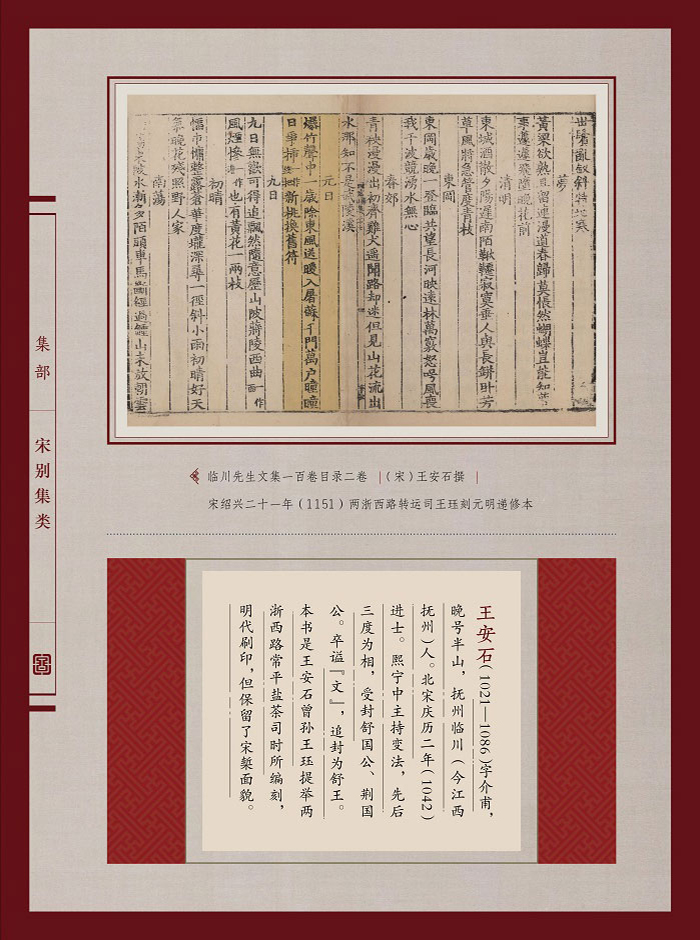 集部
宋别集类
出鬢亂釵斜特地寒
夢
黃粱欲熟且留連漫道春歸莫悵然蝴蝶豈能知夢
事蘧蘧飛墮晚花前
清明
東城酒散夕陽遲南陌鞦韆寂寞垂人與長缾卧芳
草風將急管度青枝
東岡
東岡歲晚一登臨共望長河映遠林萬竅怒号風喪
我千波競湧水無心
春郊
青秧漫漫出初齊雞犬遙聞路却迷但見山花流出
水那知不是武陵溪
元日
爆竹聲中一歲除東風送暖入屠蘇千門萬户曈曈
日爭插新桃換舊符
九日
九日無歡可得追飄然隨意歷山陂蔣陵西曲一作
風煙慘一作也有黃花一兩枝
初晴
幅巾慵整露蒼華度壠深尋一徑斜小雨初晴好天
氣晚花殘照野人家
南蕩
陂水漸夕陌頭車馬斷經過鍾山未放朝雲
临川先生文集一百卷目录二卷 |(宋)王安石撰 |
宋绍兴二十一年(1151)两浙西路转运司王珏刻元明递修本
王安石(1021—1086)字介甫,
晚号半山,抚州临川(今江西
抚州)人。北宋庆历二年(1042)
进士。熙宁中主持变法,先后
三度为相,受封舒国公、荆国
公。卒谥『文』,追封为舒王。
本书是王安石曾孙王珏提举两
浙西路常平盐茶司时所编刻,
明代刷印,但保留了宋椠面貌。